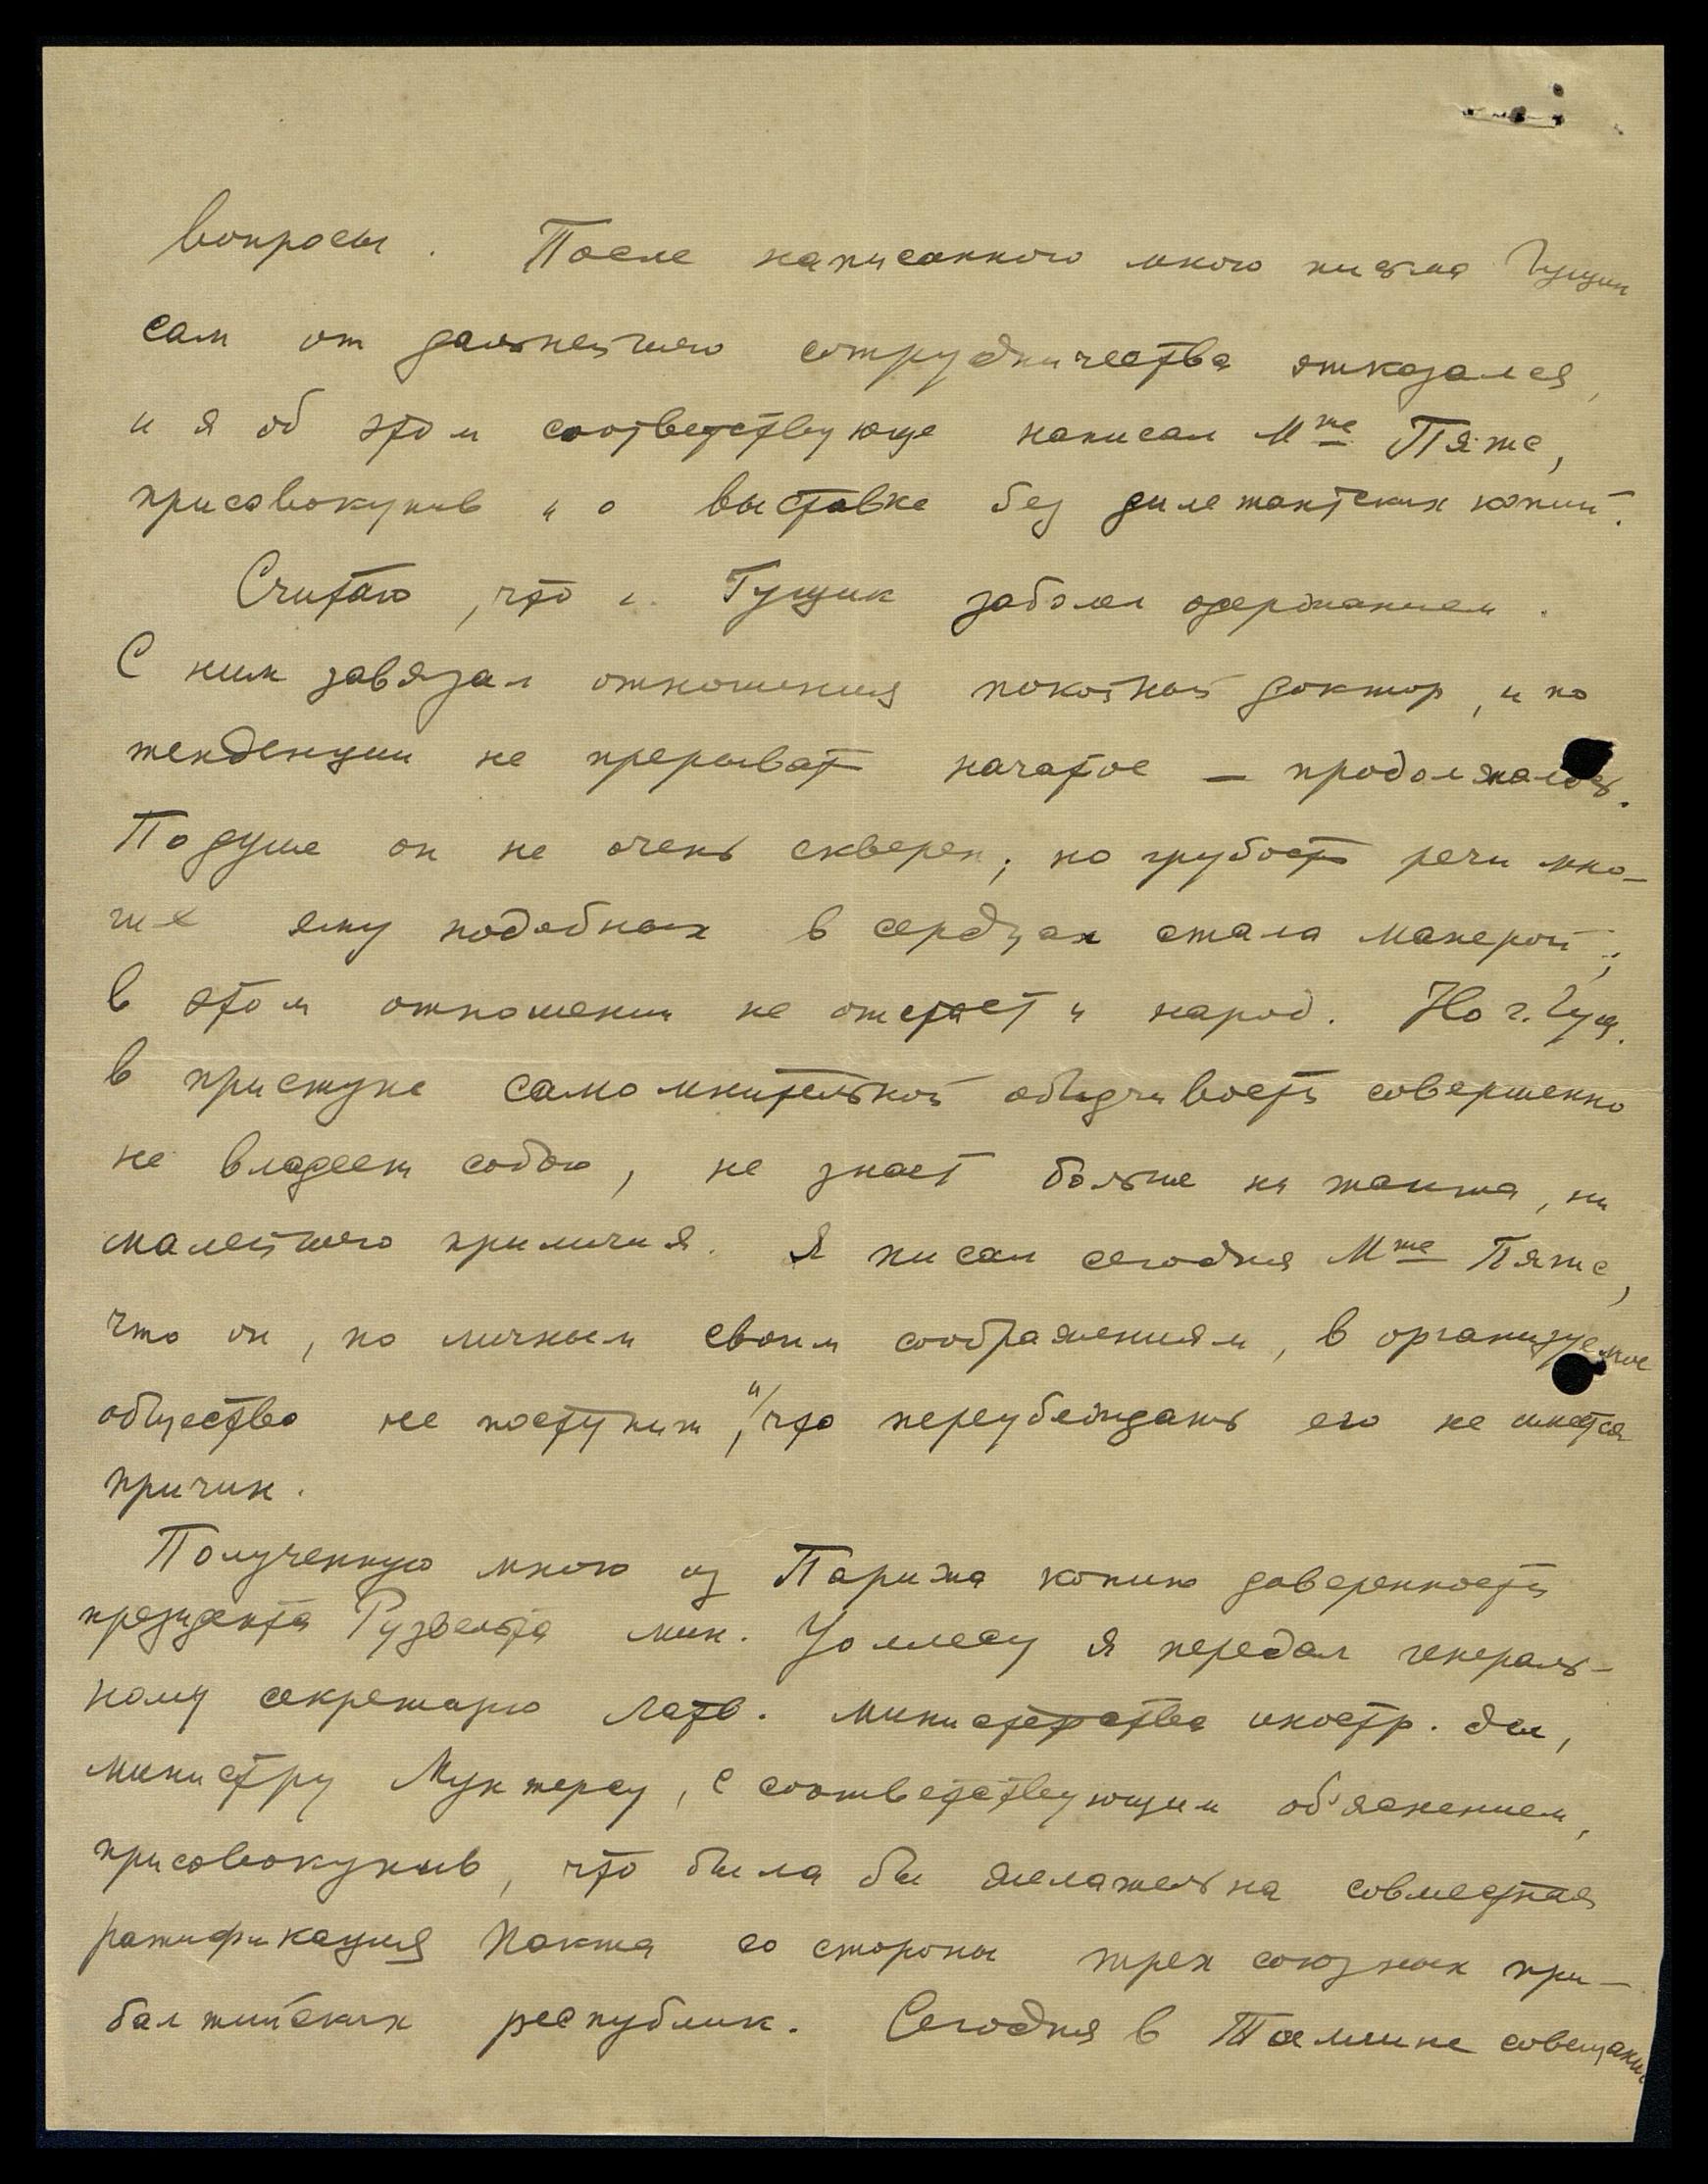 вопросы. После написанного мною письма Гущик
сам от дальнейшего сотрудничества отказался,
и я об этом соответствующе написал Mme Пятс,
присовокупив и о выставке без дилетантских копий.
Считаю, что г. Гущик заболел одержанием.
С ним завязал отношения покойный доктор, и по
тенденции не прерывать начатое — продолжалось.
По душе он не очень скверен, но грубость речи мно-
гих ему подобных в сердцах стала манерой;
в этом отношении не отстает и народ. Но г. Гущ.
в приступе самомнительной обидчивости совершенно
не владеет собою, не знает больше ни такта, ни
малейшего приличия. Я писал сегодня Mme Пятс,
что он, по личным своим соображениям, в организуемое
общество не поступит, и что переубеждать его не имеется
причин.
Полученную мною из Парижа копию доверенности
президента Рузвельта мин. Уоллесу я передал генераль-
ному секретарю Латв. министерства иностр. дел,
министру Мунтерсу, с соответствующим об'яснением,
присовокупив, что была бы желательна совместная
ратификация Пакта со стороны трех союзных при-
балтийских республик. Сегодня в Таллине совещание